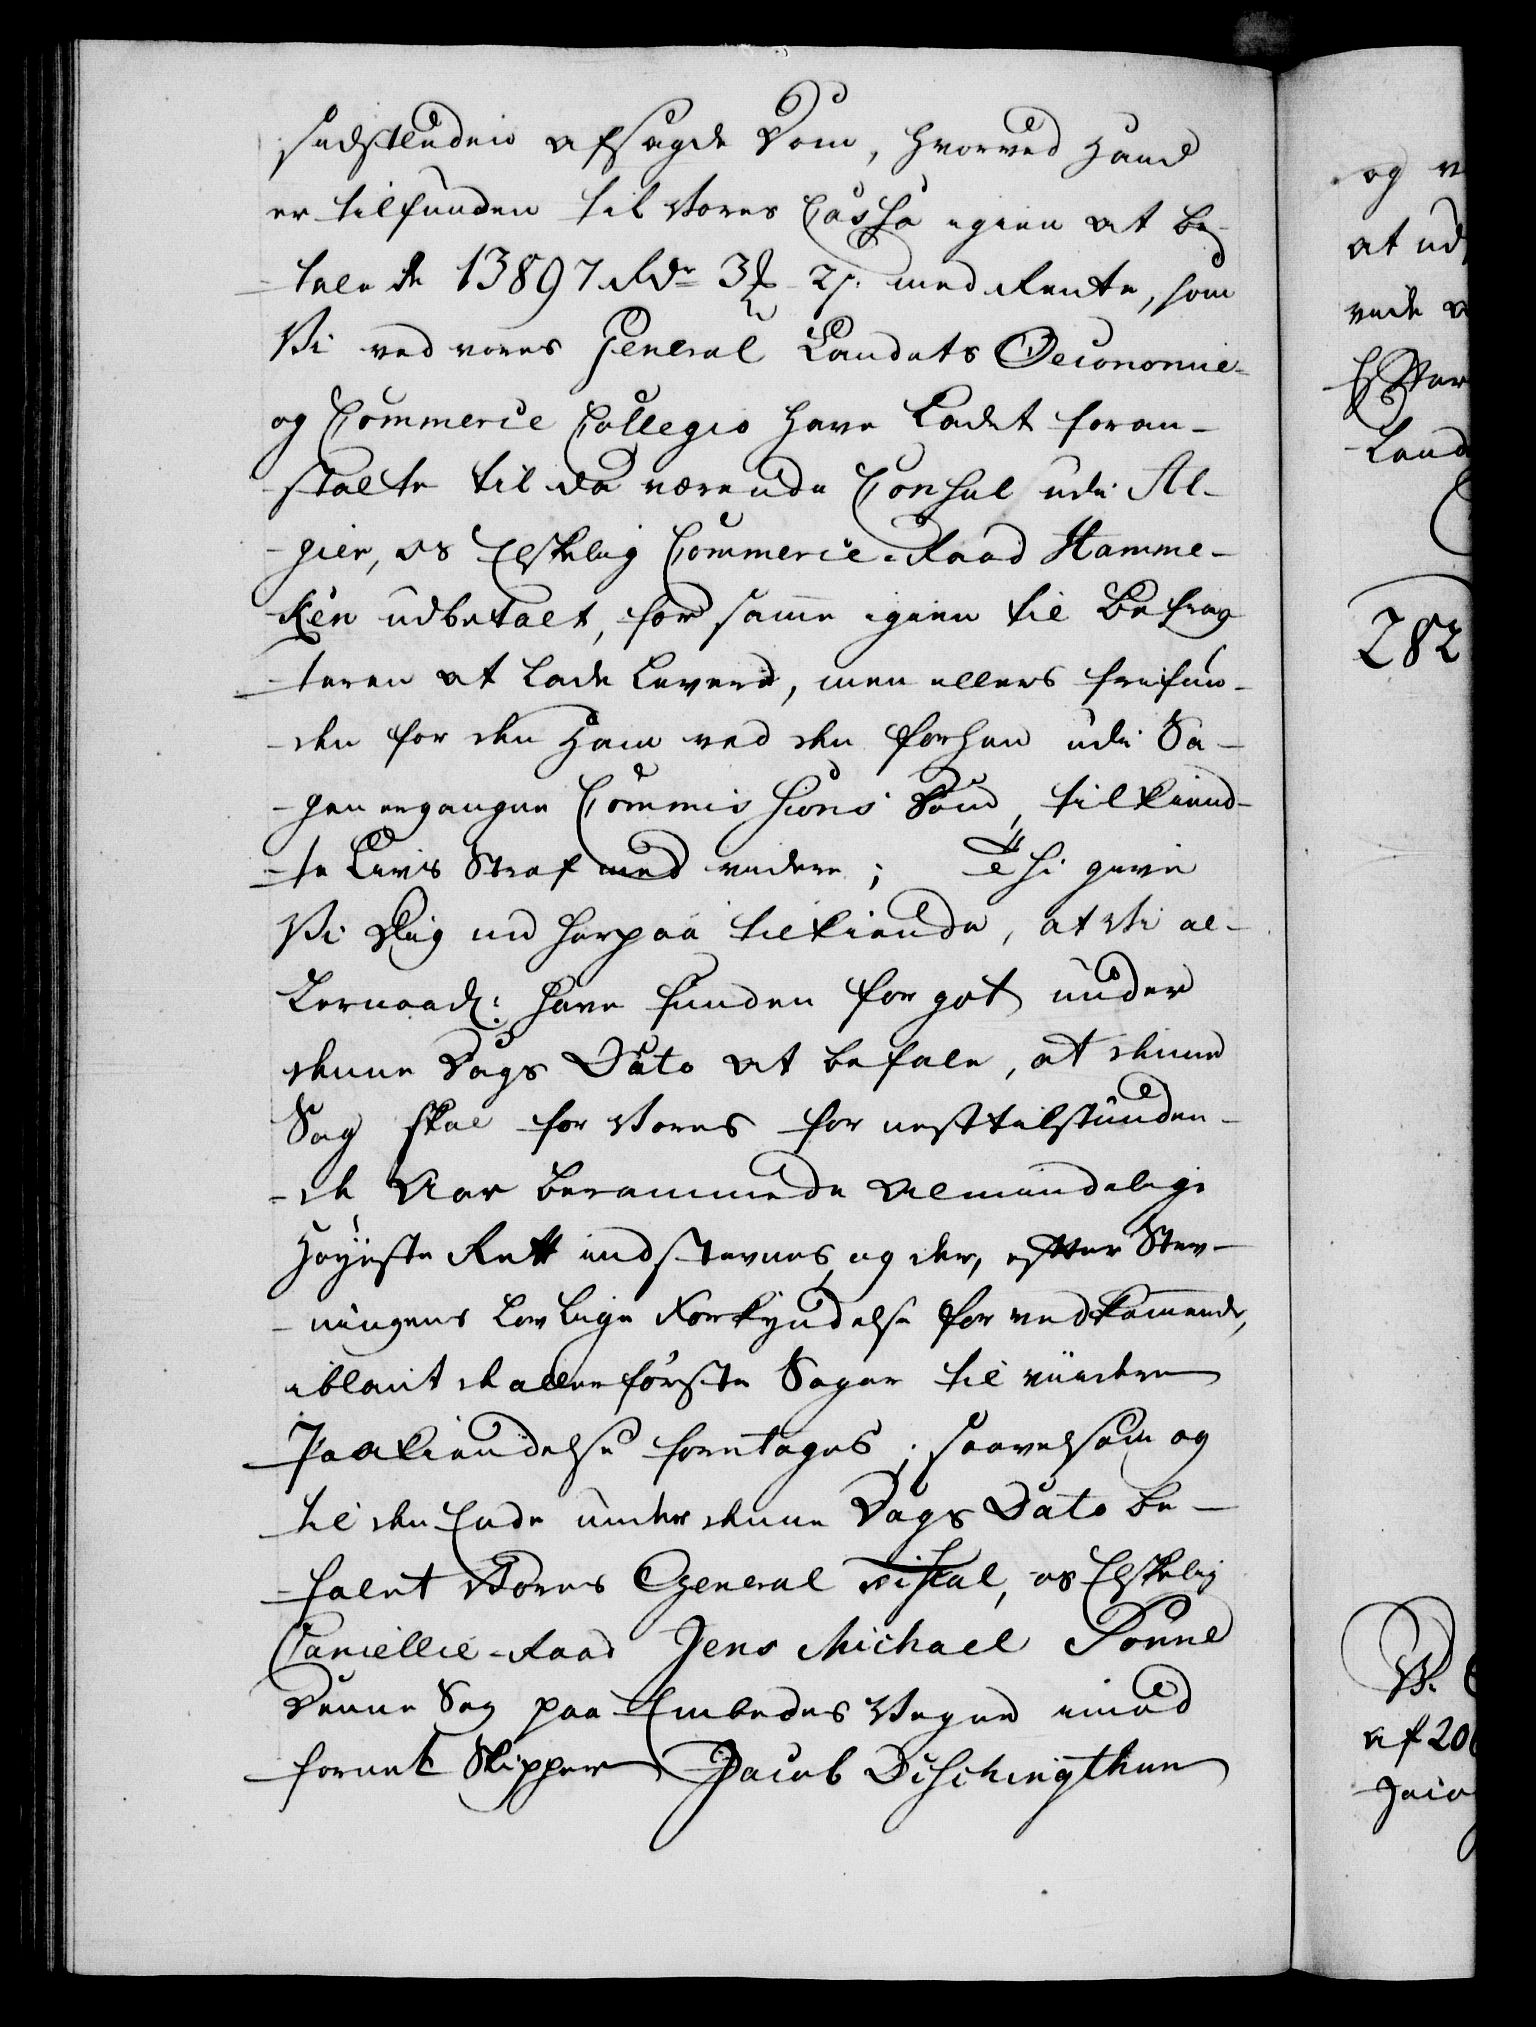 sidstleden afsagde Dom, hvorved Hand
er tilfunden til Vores Cassa igien at be-
-tale de 13897 Rdr 3 ₰ 2 s. med Rente, som
Vi ved vores General Landets Oeconomie-
og Commerce Collegio have ladet foran-
-stalte til da værende Consul udi Al-
-gier, os Elskelig Commerce-Raad Hamme-
-ken udbetalt, for samme igien til Befrag
-teren at lade levere, men ellers frifun-
-den for den Ham ved den forhen udi Sa-
-gen ergangne Commissions Dom, tilkiend-
-te Livs Straf med videre; Thi give
Vi Dig nu herpaa tilkiende, at Vi al-
lernaad: have funden for got under
denne Dags Dato at befale, at denne
Sag skal for Vores for nesttilstunden-
-de Aar berammede Almindelige
Høyeste Rett indstevnes, og der, efter Stev-
-ningens lovlige Forkyndelse for vedkommende,
iblant de allerførste Sager til viidere
Paakiendelse foretages; saavelsom og
til den Ende under denne Dags Dato be-
-falet Vores General Fiscal, os Elskelig
Cancellie-Raad Jens Michael Sonne
Denne Sag paa Embedes Vegne imod
fornet Skipper Jacob Dischingthun
og v
at ud
Efter
Land
282
af 20
Jaco